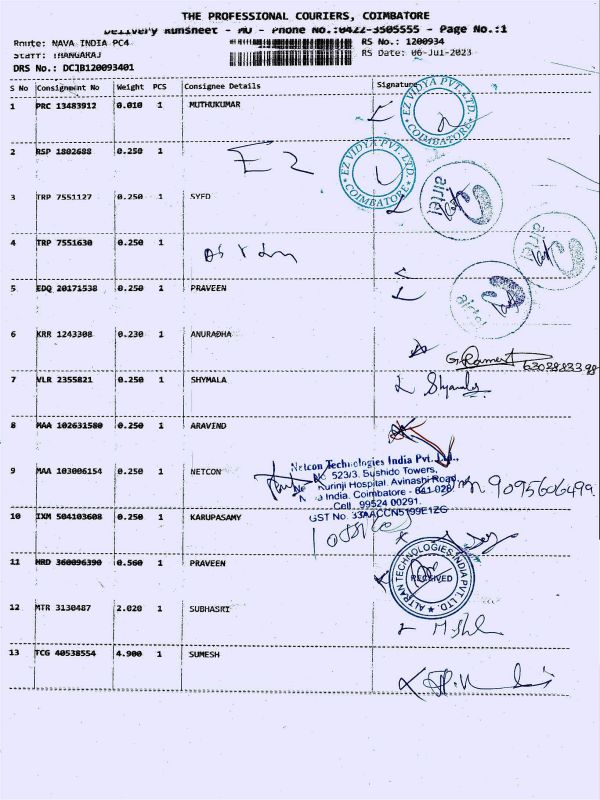 THE PROFESSIONAL COURIERS, COIMBATORE
Delivery Runsheet - MO - Phone No.:0422-3505555 - Page No.:1
Route: NAVA INDIA PC4 RS No.: 1200934
Staff: THANGARAJ RS Date: 06-Jul-2023
DRS No.: DCJB120093401
S No Consignment No Weight PCS Consignee Details Signature
1 PRC 13483912 0.010 1 MUTHUKUMAR
EZ VIDYA PVT. LTD. COIMBATORE
2 RSP 1802688 0.250 1 EZ
EZ VIDYA PVT. LTD. COIMBATORE
3 TRP 7551127 0.250 1 SYED
airtel
4 TRP 7551630 0.250 1
5 EDQ 20171538 0.250 1 PRAVEEN
airtel
6 KRR 1243308 0.230 1 ANURADHA
7 VLR 2355821 0.250 1 SHYMALA Shyamala
8 MAA 102631580 0.250 1 ARAVIND
9 MAA 103006154 0.250 1 NETCON
Netcon Technologies India Pvt. Ltd.,
No. 523/3, Sushido Towers,
Kurinji Hospital, Avinashi Road,
India, Coimbatore - 641 028
Cell : 99524 00291.
GST No. 33AACCN5199E1ZG
9095606499
10 IXM 504103608 0.250 1 KARUPASAMY
11 HRD 360096390 0.560 1 PRAVEEN
ALTRAN TECHNOLOGIES INDIA PVT. LTD. RECEIVED
12 MTR 3130487 2.020 1 SUBHASRI
13 TCG 40538554 4.900 1 SUMESH